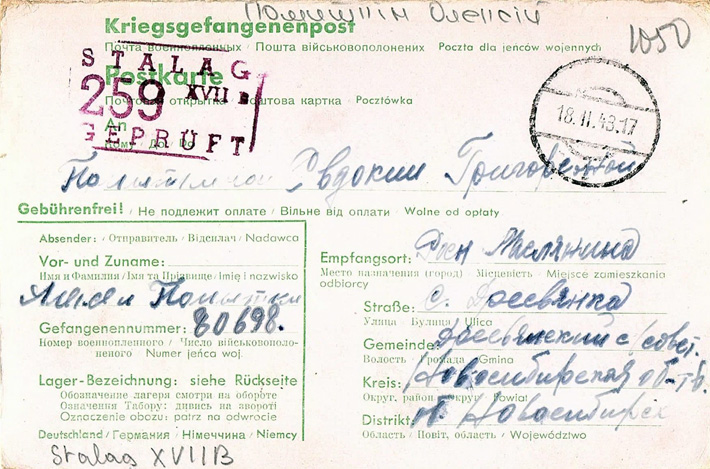 Kriegsgefangenenpost
1050
Почта военнопленных / Пошта військовополонених Poczta dla jeńców wojennych
STALAG
XVII B
259
GEPRÜFT
Postkarte
Почтовая открытка / Поштова картка · Pocztówka
18.11.43.17
An
Кому / До / Do
Евдокии
Gebührenfrei! / Не подлежит оплате / Вільне від оплати · Wolne od opłaty
Absender: / Отправитель / Відсилач / Nadawca
Vor- und Zuname:
Имя и Фамилия / Імя та Прізвище / Imię i nazwisko
Gefangenennummer: 80698.
Номер военнопленного / Число військовополоненого Numer jeńca woj.
Lager-Bezeichnung: siehe Rückseite
Обозначение лагеря смотри на обороте
Означення Табору: дивись на звороті
Oznaczenie obozu: patrz na odwrocie
Deutschland / Германия / Німеччина / Niemcy
Stalag XVIIB
Empfangsort:
Место назначения (город) / Місцевість · Miejsce zamieszkania odbiorcy
Straße: с.
Улица / Вулиця / Ulica
Gemeinde:
Волость / Громада / Gmina
Kreis: Новосибирская
Округ, район / Округ / Powiat
Distrikt: Новосибирск
Область / Повіт, область / Województwo